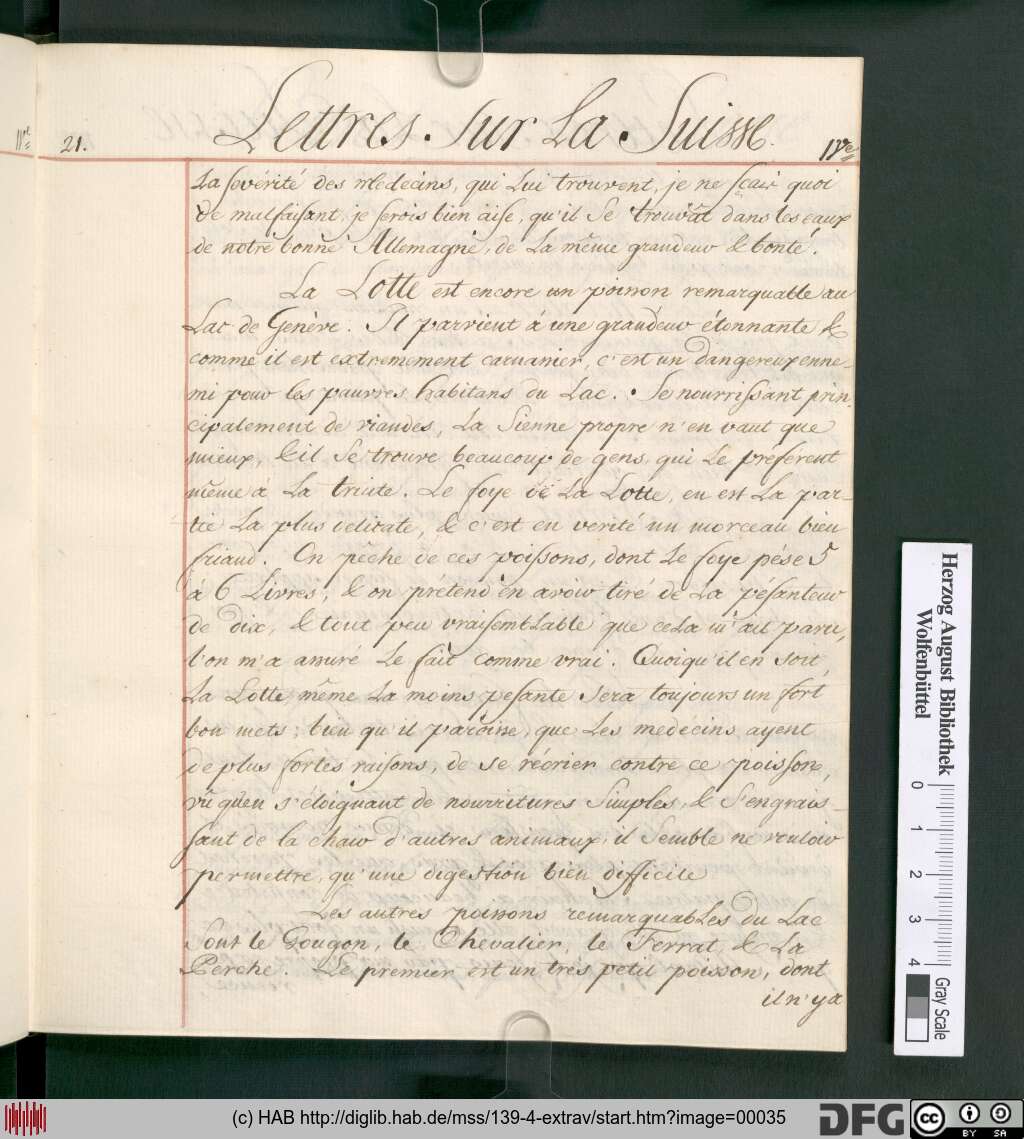 21. Lettres sur la Suisse. IVe
la sévérité des Medecins, qui lui trouvent, je ne sçai quoi
de malfaisant, je serois bien aise, qu'il se trouvât dans les eaux
de notre bonne Allemagne, de la même grandeur & bonté.
La Lotte est encore un poisson remarquable au
Lac de Genève. Il parvient à une grandeur étonnante &
comme il est extremement carnanier, c'est un dangereux enne-
mi pour les pauvres habitans du Lac. Se nourrissant prin-
cipalement de viandes, la sienne propre n'en vaut que
mieux, & il se trouve beaucoup de gens, qui le préférent
même à la truite. Le foye de la Lotte, en est la par-
tie la plus delicate, & c'est en verité un morceau bien
friand. On pêche de ces poissons, dont le foye pése 5
à 6 Livres, & on prétend en avoir tiré de la pésanteur
de dix, & tout peu vraisemblable que cela m'ait paru,
l'on m'a assuré le fait comme vrai. Quoiqu'il en soit,
la Lotte même la moins pesante sera toujours un fort
bon mets; bien qu'il paroisse, que les medécins ayent
de plus fortes raisons, de se récrier contre ce poisson,
vû qu'en s'éloignant de nourritures simples, & s'engrais-
sant de la chair d'autres animaux, il semble ne vouloir
permettre, qu'une digestion bien difficile
Les autres poissons remarquables du Lac
sont le Gougon, le Chevalier, le Ferrat, & la
Perche. Le premier est un très petit poisson, dont
il n'y a
Herzog August Bibliothek
Wolfenbüttel
0 1 2 3 4
Gray Scale
(c) HAB http://diglib.hab.de/mss/139-4-extrav/start.htm?image=00035
DFG
cc
BY SA